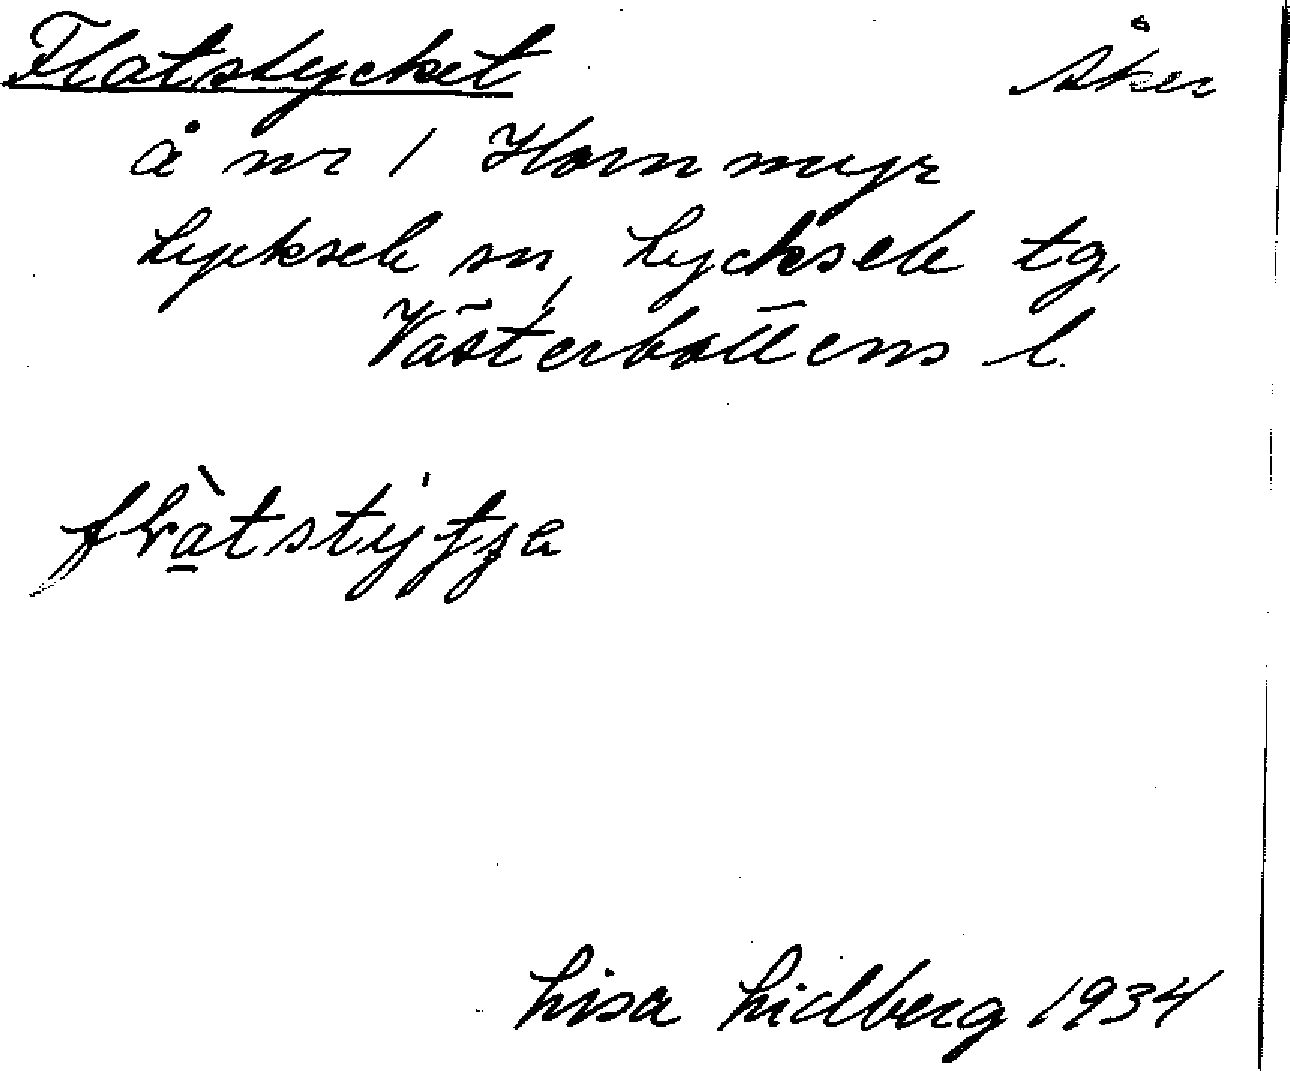 Flatstycket åker
å nr 1 Hornmyr
Lycksele sn, Lycksele tg,
Västerbottens l.
Lisa Lidberg 1934